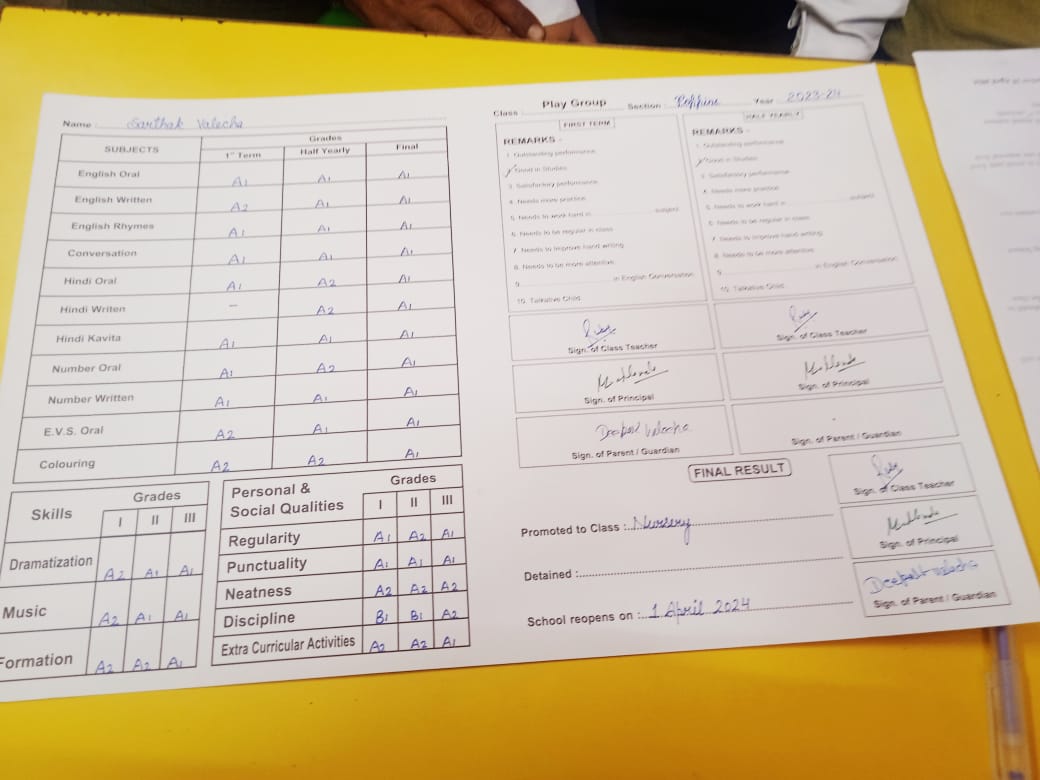 Name : Sarthak Valecha
SUBJECTS Grades
1st Term Half Yearly Final
English Oral A1 A1 A1
English Written A2 A1 A1
English Rhymes A1 A1 A1
Conversation A1 A1 A1
Hindi Oral A1 A2 A1
Hindi Writen – A2 A1
Hindi Kavita A1 A1 A1
Number Oral A1 A2 A1
Number Written A1 A1 A1
E.V.S. Oral A2 A1 A1
Colouring A2 A2 A1
Skills Grades
I II III
Dramatization A2 A1 A1
Music A2 A1 A1
Formation A2 A2 A1
Personal & Social Qualities Grades
I II III
Regularity A1 A2 A1
Punctuality A1 A1 A1
Neatness A2 A2 A2
Discipline B1 B1 A2
Extra Curricular Activities A2 A2 A1
Class : Play Group Section : Year 2023-24
FIRST TERM
REMARKS -
1. Outstanding performance
✓ Good in Studies
3. Satisfactory performance
4. Needs more practice
5. Needs to work hard in ........ subject
6. Needs to be regular in class
7. Needs to improve hand writing
8. Needs to be more attentive
9. ........ in English Conversation
10. Talkative Child
Sign. of Class Teacher
Sign. of Principal
Deepak Valecha
Sign. of Parent / Guardian
HALF YEARLY
REMARKS -
1. Outstanding performance
✓ Good in Studies
3. Satisfactory performance
4. Needs more practice
5. Needs to work hard in ........ subject
6. Needs to be regular in class
7. Needs to improve hand writing
8. Needs to be more attentive
9. ........ in English Conversation
10. Talkative Child
Sign. of Class Teacher
Sign. of Principal
Sign. of Parent / Guardian
FINAL RESULT
Promoted to Class : Nursery
Detained :
School reopens on : 1 April 2024
Sign. of Class Teacher
Sign. of Principal
Deepak Valecha
Sign. of Parent / Guardian